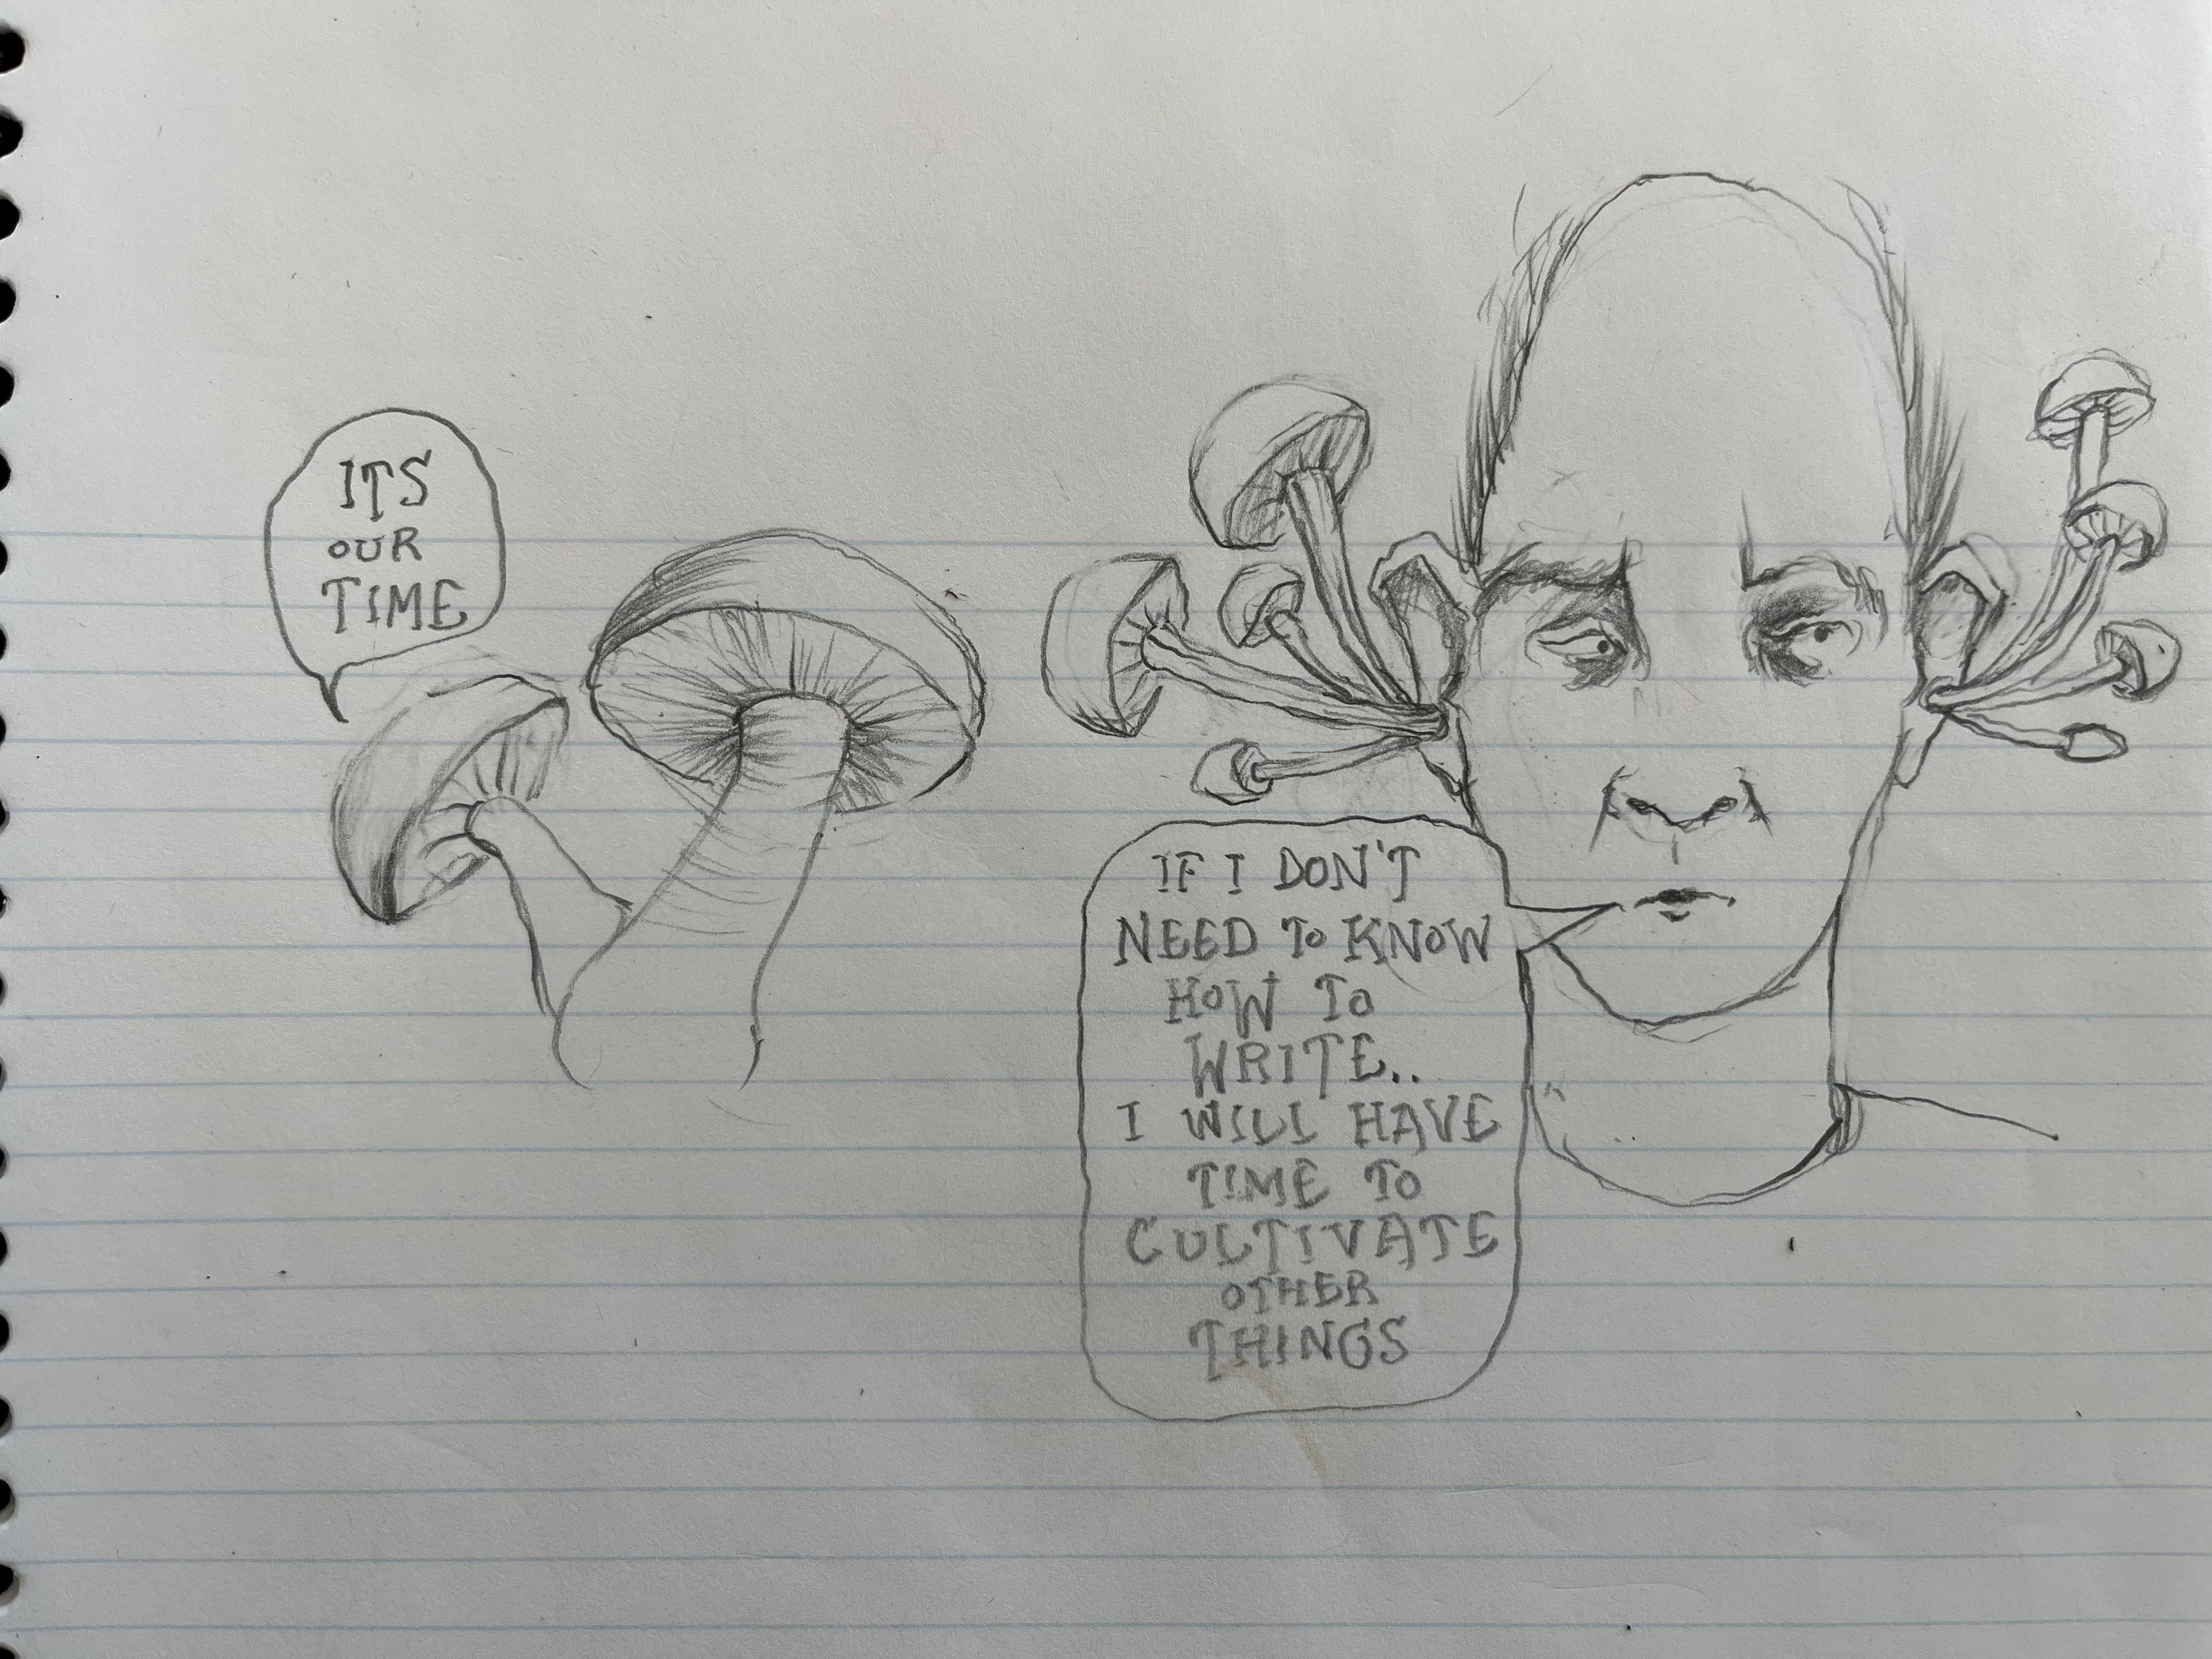 ITS
OUR
TIME
IF I DON'T
NEED TO KNOW
HOW TO
WRITE..
I WILL HAVE
TIME TO
CULTIVATE
OTHER
THINGS